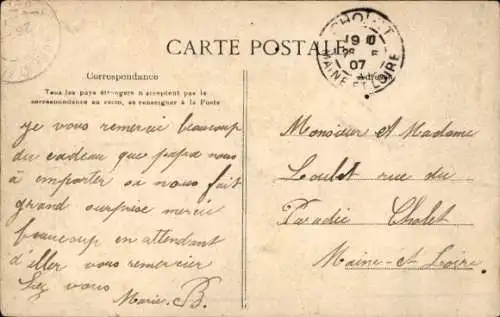 CARTE POSTALE
Correspondance
Tous les pays étrangers n'acceptent pas la
correspondance au recto, se renseigner à la Poste
Adresse
CHOLET
19
07
MAINE ET LOIRE
je vous remercie beaucoup
du cadeau que papa nous
à emporter sa nous fait
grand surprise merci
beaucoup en attendant
d'aller vous remercier
chez vous
Marie. B.
Monsieur et Madame
Loulet rue du
Paradie Cholet
Maine-et-Loire